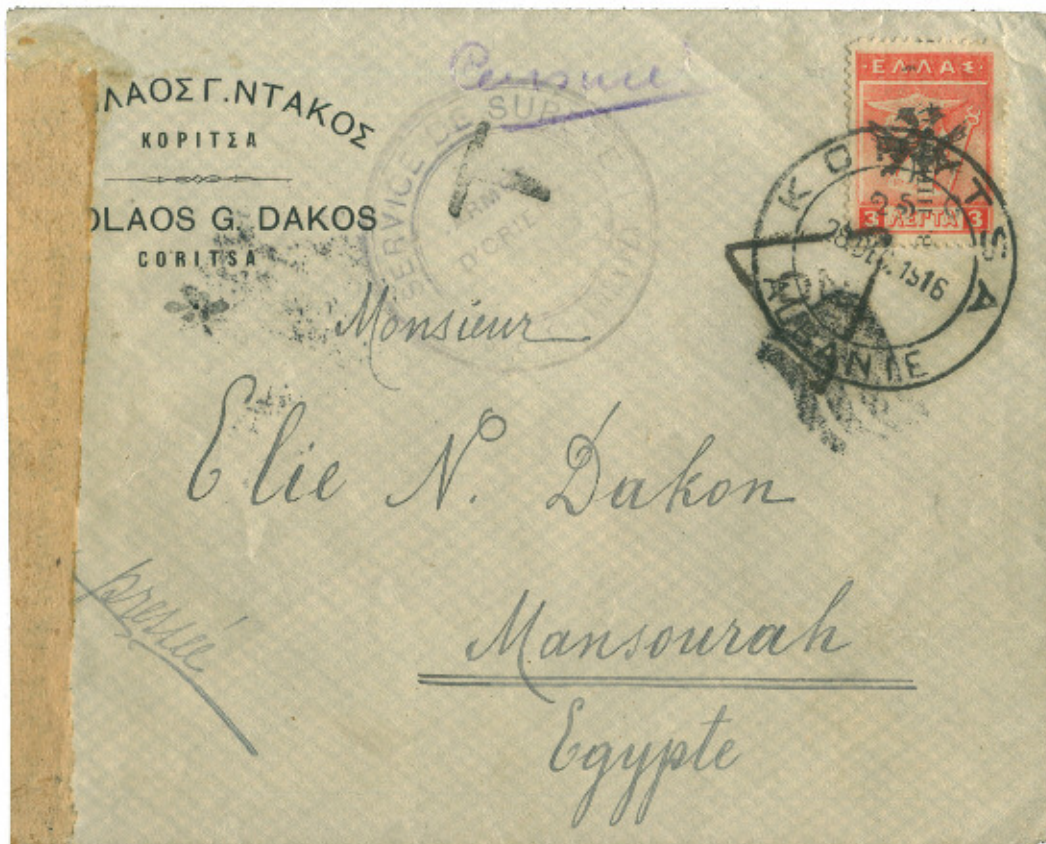 ΛΑΟΣ Γ. ΝΤΑΚΟΣ
ΚΟΡΙΤΣΑ
OLAOS G. DAKOS
CORITSA
Censure
SERVICE DE SUR
D'ORIE
ΕΛΛΑΣ
3 ΛΕΠΤΑ 3
KORYTSA
25
28 1916
ALBANIE
Monsieur
Elie N. Dakon
pressée
Mansourah
Egypte